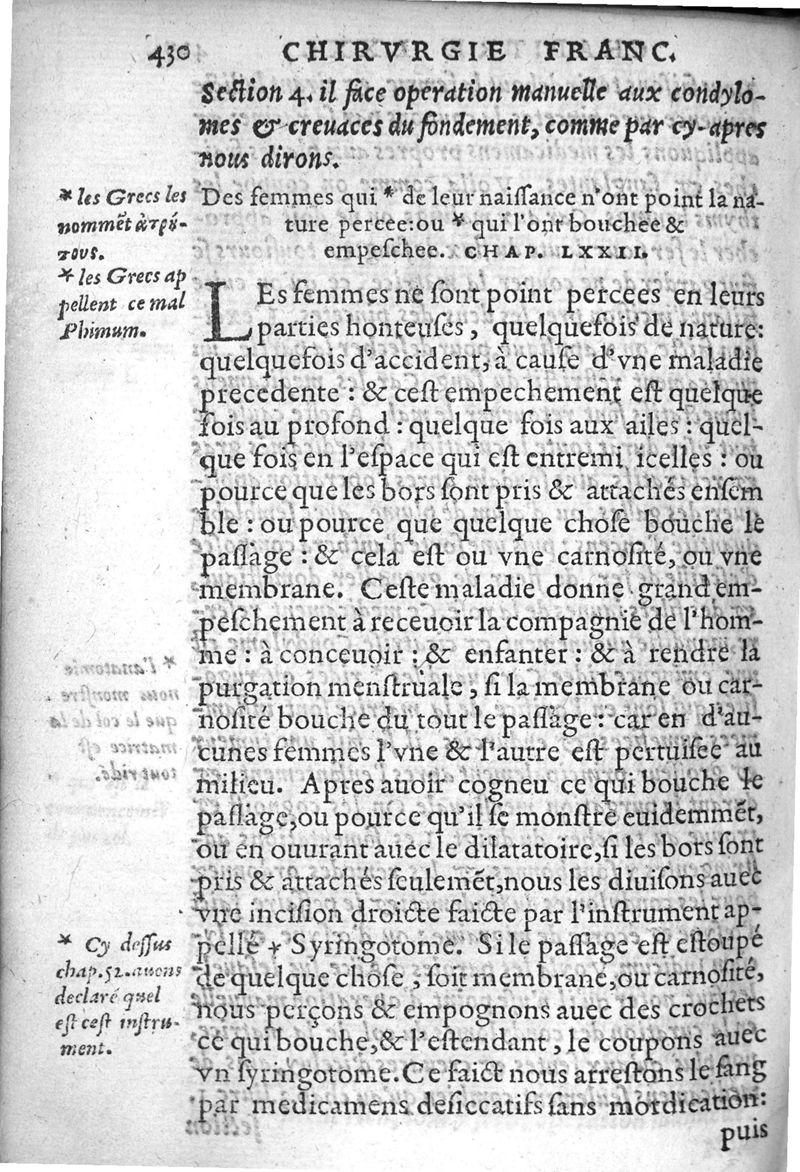 430 CHIRVRGIE FRANC.
Section 4. il face operation manuelle aux condylo-
mes & creuaces du fondement, comme par cy-apres
nous dirons.
Des femmes qui * de leur naissance n'ont point la na-
ture percee: ou * qui l'ont bouchee &
empeſchee. CHAP. LXXII.
* les Grecs les
nommēt ἀτρή-
τους.
* les Grecs ap
pellent ce mal
Phimum.
LEs femmes ne ſont point percees en leurs
parties honteuſes, quelquefois de nature:
quelquefois d'accident, à cauſe d'vne maladie
precedente : & ceſt empechement eſt quelque
fois au profond : quelque fois aux ailes : quel-
que fois en l'eſpace qui eſt entremi icelles : ou
pource que les bors ſont pris & attachés enſem
ble : ou pource que quelque choſe bouche le
paſſage : & cela eſt ou vne carnoſité, ou vne
membrane. Ceſte maladie donne grand em-
peſchement à receuoir la compagnie de l'hom-
me : à conceuoir : & enfanter : & à rendre la
purgation menſtruale, ſi la membrane ou car-
noſité bouche du tout le paſſage : car en d'au-
cunes femmes l'vne & l'autre eſt pertuiſee au
milieu. Apres auoir cogneu ce qui bouche le
paſſage, ou pource qu'il ſe monſtre euidemmēt,
ou en ouurant auec le dilatatoire, ſi les bors ſont
pris & attachés ſeulemēt, nous les diuiſons auec
vne inciſion droicte faicte par l'inſtrument ap-
pellé * Syringotome. Si le paſſage eſt eſtoupé
de quelque choſe, ſoit membrane, ou carnoſité,
nous perçons & empognons auec des crochets
ce qui bouche, & l'eſtendant, le coupons auec
vn ſyringotome. Ce faict nous arreſtons le ſang
par medicamens deſiccatifs ſans mordication:
* Cy deſſus
chap. 52. auons
declaré quel
eſt ceſt inſtru-
ment.
puis